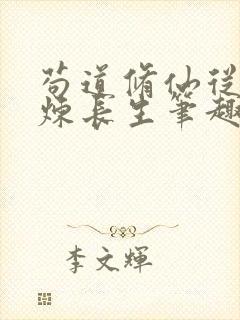 苟道脩仙從
煉長生筆趣
李文輝